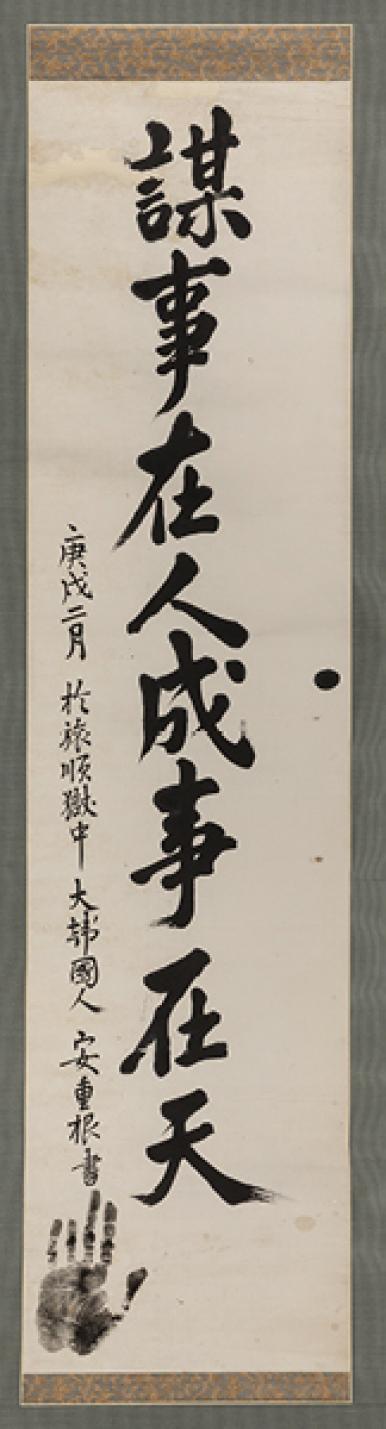 謀事在人成事在天
庚戌二月 於旅順獄中 大韓國人 安重根書